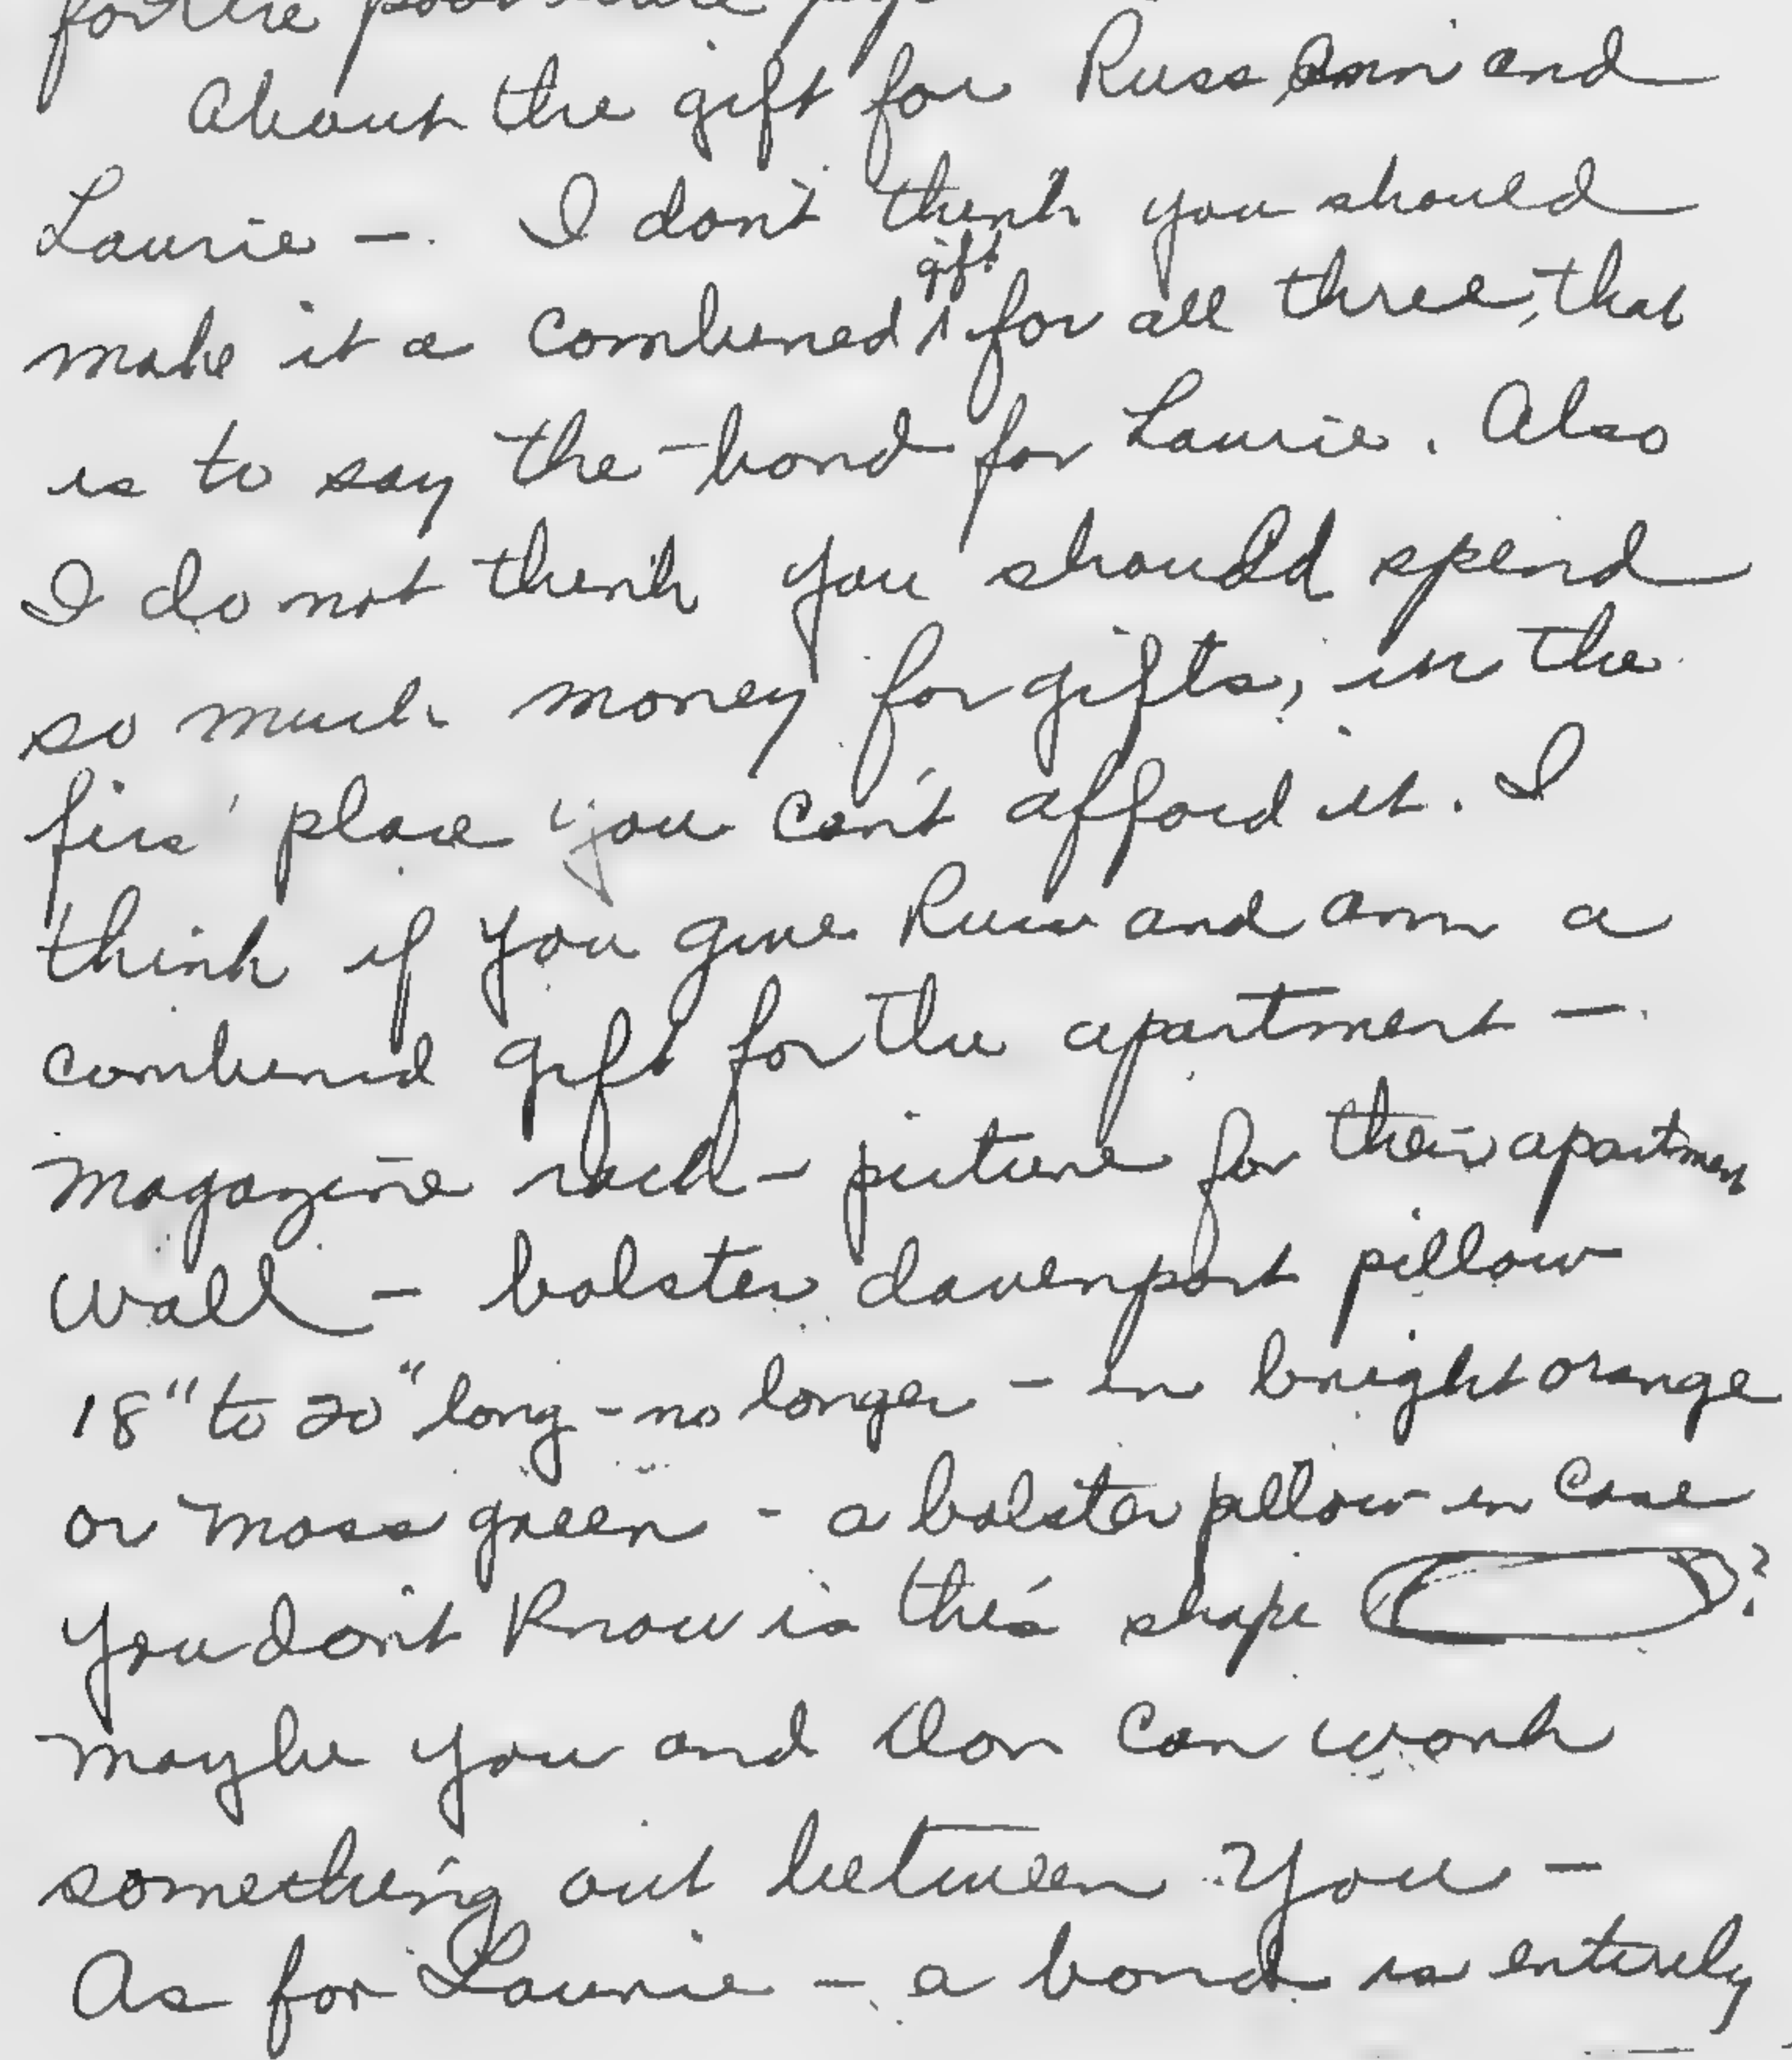 for the
About the gift for Russ, Ann and
Laurie -. I don't think you should
make it a combined gift for all three, that
is to say the - bond for Laurie. Also
I do not think you should spend
so much money for gifts, in the
firs' place you can't afford it. I
think if you give Russ and Ann a
combined gift for the apartment -.
magazine rack - picture for their apartment
wall - bolster davenport pillow
18" to 20" long - no longer - in bright orange
or moss green - a bolster pillow in case
you don't know is this shape ?
Maybe you and Don can work
something out between you -
As for Laurie - a bond is entirely